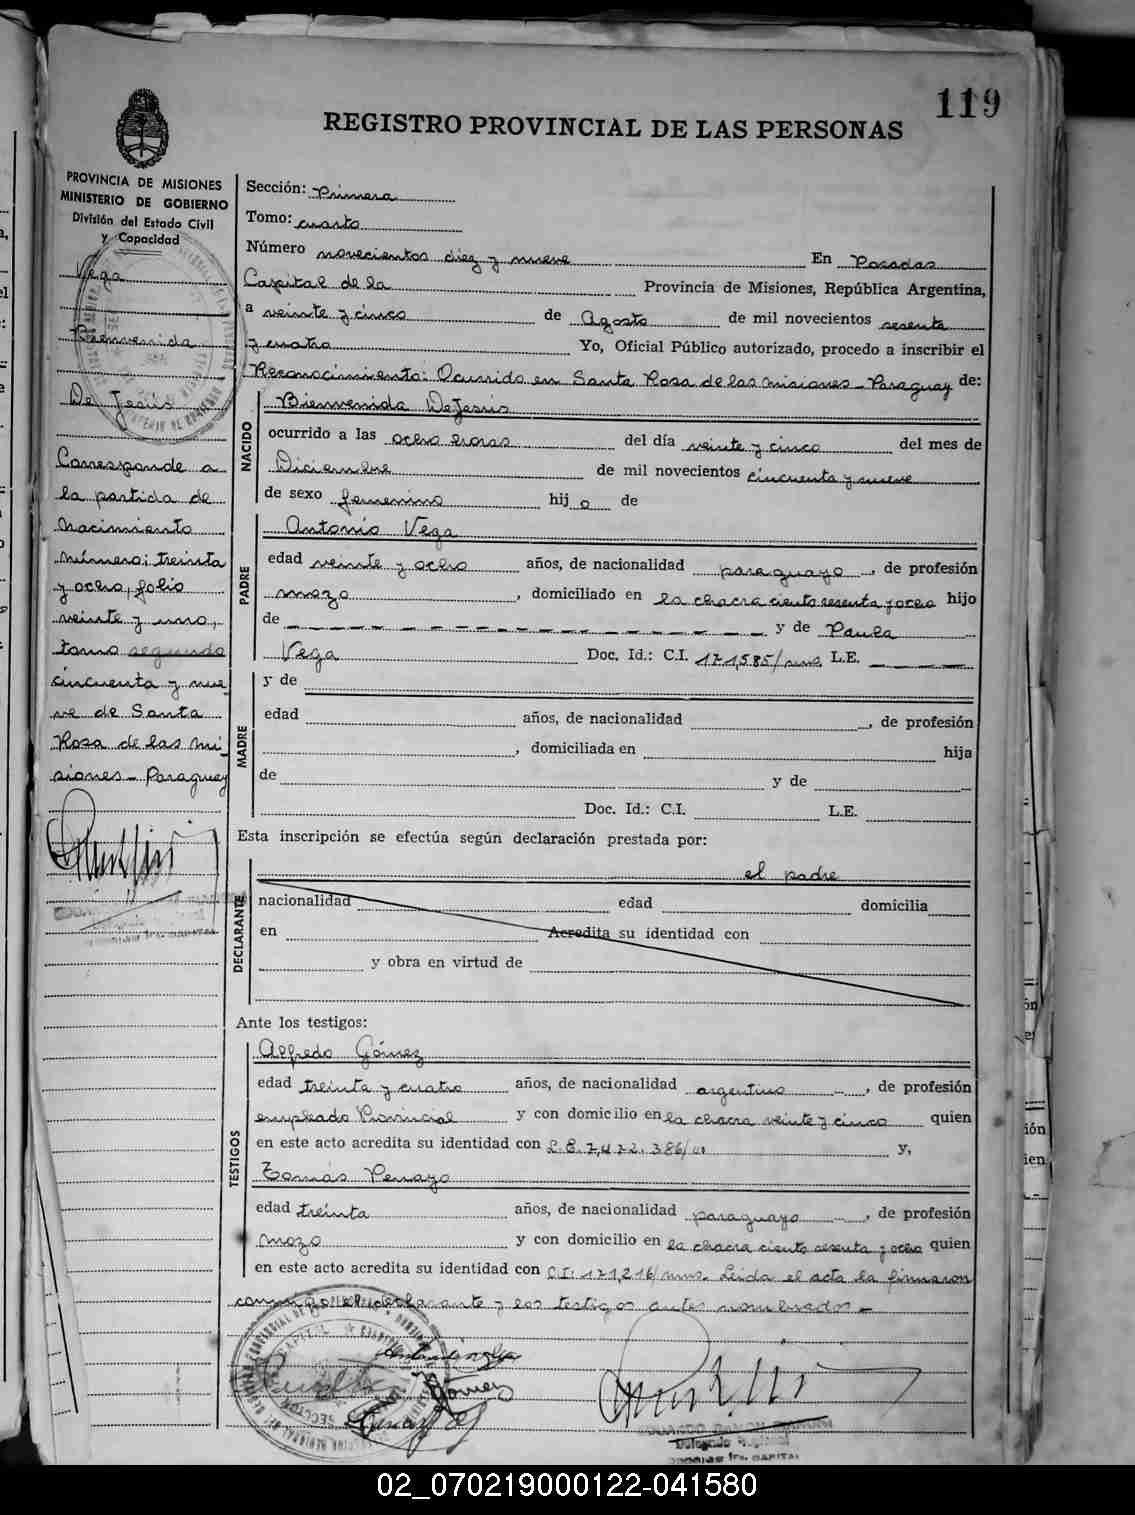 119
REGISTRO PROVINCIAL DE LAS PERSONAS
PROVINCIA DE MISIONES
MINISTERIO DE GOBIERNO
División del Estado Civil
y Capacidad
Vega
Bienvenida
De Jesús
Corresponde a
la partida de
nacimiento
número: treinta
y ocho, folio
veinte y uno,
tomo segundo
cincuenta y nue
ve de Santa
Rosa de las Mi_
siones_ Paraguay
Sección: Primera
Tomo: cuarto
Número novecientos diez y nueve En Posadas
Capital de la Provincia de Misiones, República Argentina,
a veinte y cinco de Agosto de mil novecientos sesenta
y cuatro Yo, Oficial Público autorizado, procedo a inscribir el
Reconocimiento: Ocurrido en Santa Rosa de las Misiones_ Paraguay de:
NACIDO
Bienvenida DeJesús
ocurrido a las ocho horas del día veinte y cinco del mes de
Diciembre de mil novecientos cincuenta y nueve
de sexo femenino hij o de
PADRE
Antonio Vega
edad veinte y ocho años, de nacionalidad paraguayo, de profesión
mozo, domiciliado en la chacra ciento sesenta y ocho hijo
de y de Paula
Vega Doc. Id.: C.I. 171,585/mns. L.E.
MADRE
y de
edad años, de nacionalidad , de profesión
, domiciliada en hija
de y de
Doc. Id.: C.I. L.E.
Esta inscripción se efectúa según declaración prestada por:
DECLARANTE
el padre
nacionalidad edad domicilia
en Acredita su identidad con
y obra en virtud de
Ante los testigos:
TESTIGOS
Alfredo Gómez
edad treinta y cuatro años, de nacionalidad argentino, de profesión
empleado Provincial y con domicilio en la chacra veinte y cinco quien
en este acto acredita su identidad con L.E. 7,472.386 y,
Tomás Penayo
edad treinta años, de nacionalidad paraguayo, de profesión
mozo y con domicilio en la chacra ciento sesenta y ocho quien
en este acto acredita su identidad con C.I. 171,216/mns. Leida el acta la firmaron
conmigo el declarante y los testigos antes nombrados_
Gómez
02_070219000122-041580